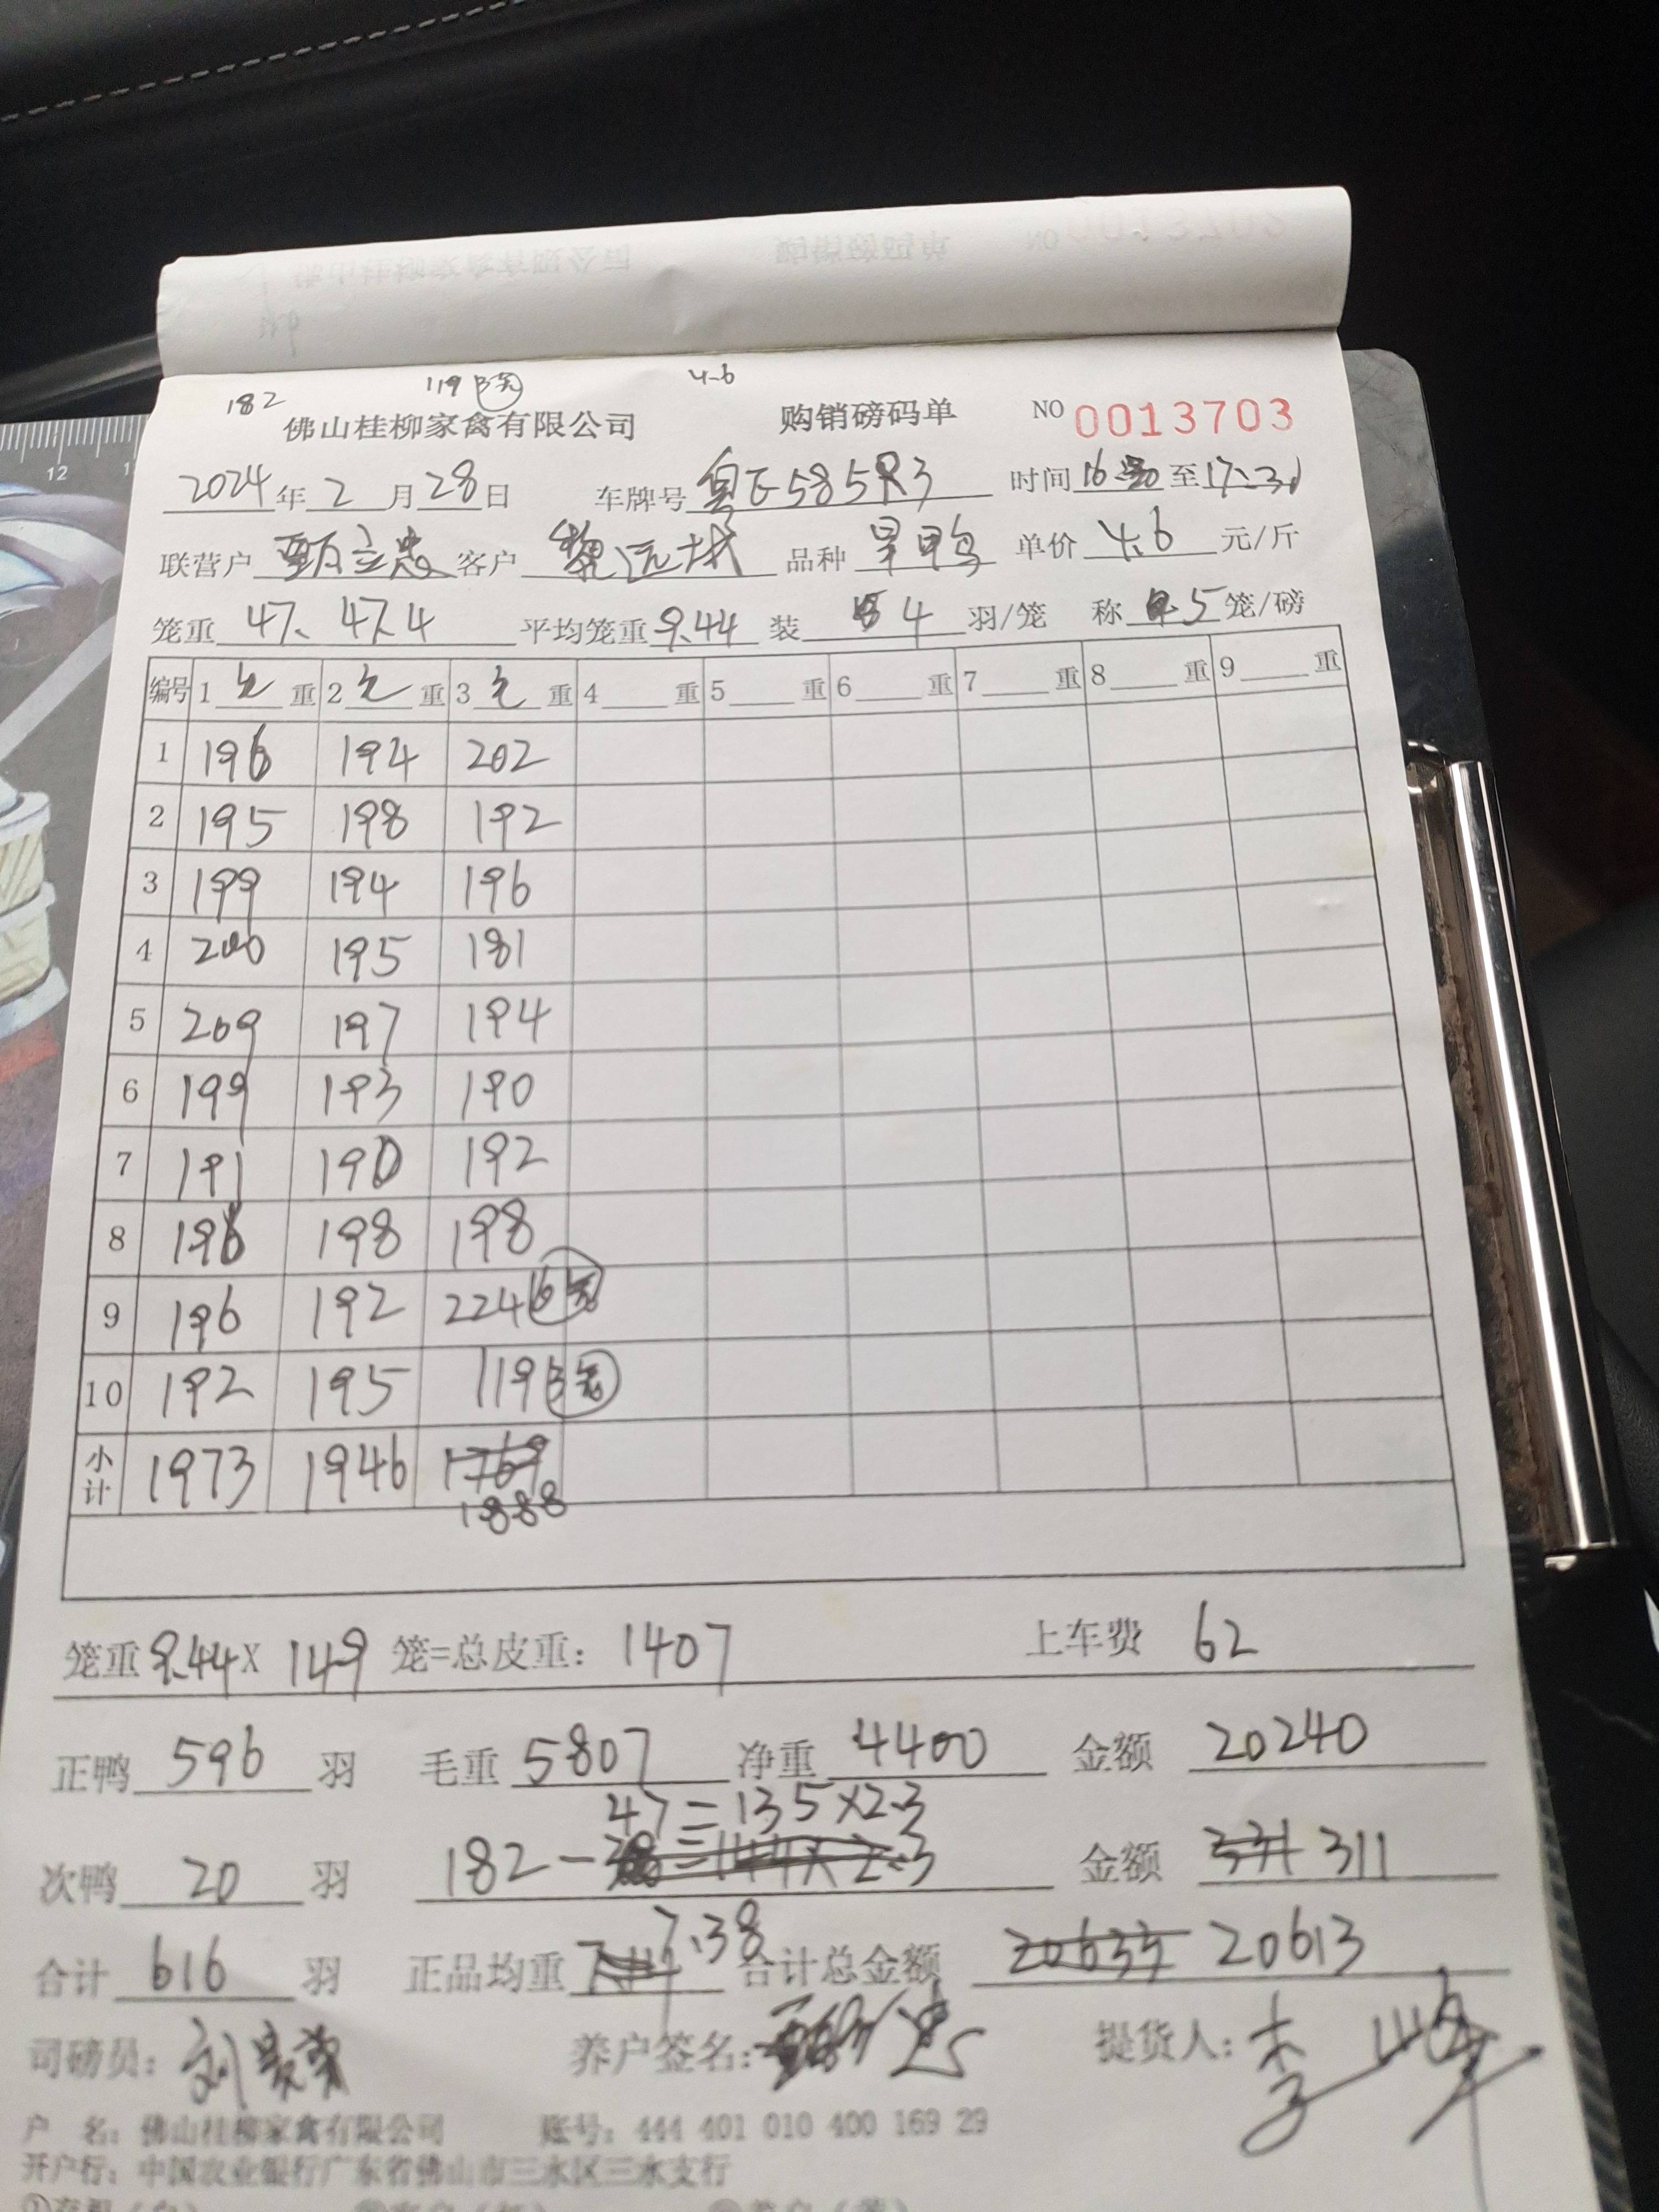 182 119 3 4.6
佛山桂柳家禽有限公司 购销磅码单 NO 0013703
2024年2月28日 车牌号 粤E585R3 时间 16 至 17:31
联营户 甄立忠 客户 黎远 品种 旱鸭 单价 4.6 元/斤
笼重 47、47.4 平均笼重 9.44 装 4 羽/笼 称 5 笼/磅
编号 1 毛 重 2 毛 重 3 毛 重 4 重 5 重 6 重 7 重 8 重 9 重
1 196 194 202
2 195 198 192
3 199 194 196
4 200 195 181
5 209 197 194
6 199 193 190
7 191 190 192
8 196 198 198
9 196 192 224 6
10 192 195 119 3
小计 1973 1946 1769
1888
笼重 9.44 X 149 笼=总皮重: 1407 上车费 62
正鸭 596 羽 毛重 5807 净重 4400 金额 20240
47=135×2.3
次鸭 20 羽 182-38=144×2.3 金额 331 311
7.38
合计 616 羽 正品均重 合计总金额 20633 20613
司磅员: 刘 养户签名: 甄立忠 提货人: 李
户 名: 佛山桂柳家禽有限公司 账号: 444 401 010 400 169 29
开户行: 中国农业银行广东省佛山市三水区三水支行